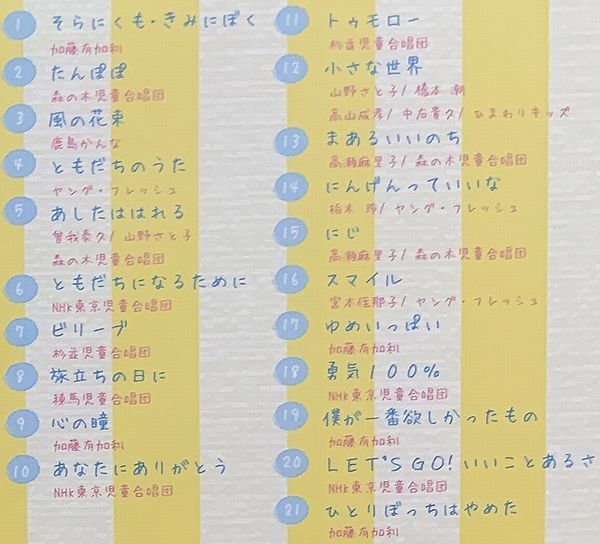 1 そらにくも・きみにぼく
加藤有加利
2 たんぽぽ
森の木児童合唱団
3 風の花束
鹿島かんな
4 ともだちのうた
ヤング・フレッシュ
5 あしたははれる
曽我泰久/ 山野さと子
森の木児童合唱団
6 ともだちになるために
NHK東京児童合唱団
7 ビリーブ
杉並児童合唱団
8 旅立ちの日に
練馬児童合唱団
9 心の瞳
加藤有加利
10 あなたにありがとう
NHK東京児童合唱団
11 トゥモロー
杉並児童合唱団
12 小さな世界
山野さと子/ 橋本 潮
高山成孝/ 中右貴久/ ひまわりキッズ
13 まあるいいのち
高瀬麻里子/ 森の木児童合唱団
14 にんげんっていいな
柏木 玲/ ヤング・フレッシュ
15 にじ
高瀬麻里子/ 森の木児童合唱団
16 スマイル
宮本佳那子/ ヤング・フレッシュ
17 ゆめいっぱい
加藤有加利
18 勇気100%
NHK東京児童合唱団
19 僕が一番欲しかったもの
加藤有加利
20 LET'S GO! いいことあるさ
NHK東京児童合唱団
21 ひとりぼっちはやめた
加藤有加利